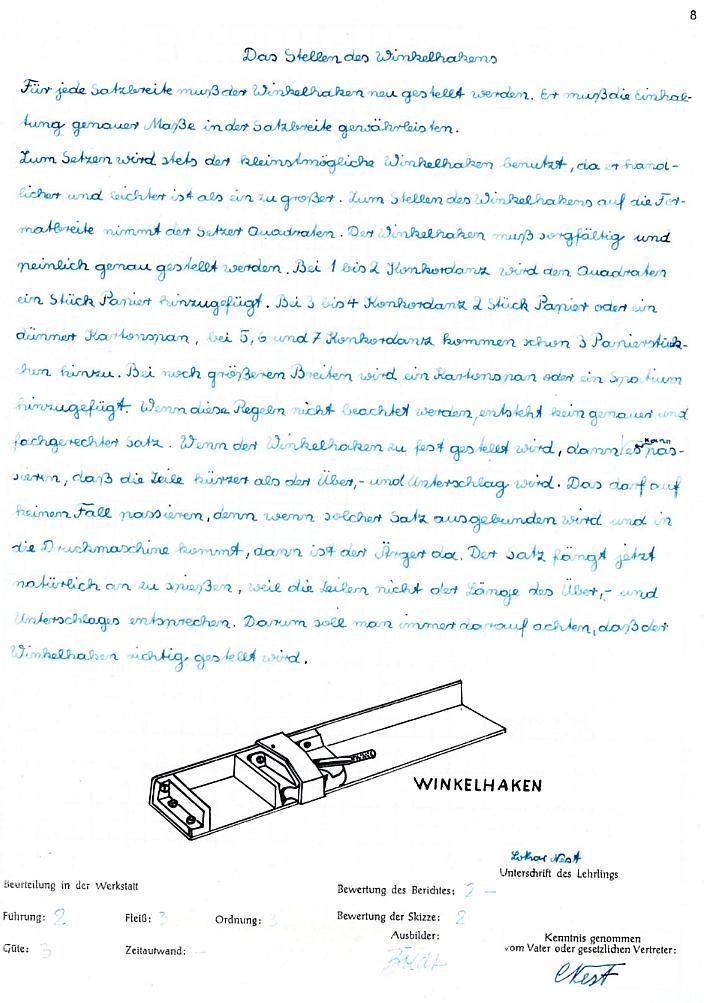 8
Das Stellen des Winkelhakens
Für jede Satzbreite muß der Winkelhaken neu gestellt werden. Er muß die Einhal-
tung genauer Maße in der Satzbreite gewährleisten.
Zum Setzen wird stets der kleinstmögliche Winkelhaken benutzt, da er hand-
licher und leichter ist als ein zu großer. Zum Stellen des Winkelhakens auf die For-
matbreite nimmt der Setzer Quadraten. Der Winkelhaken muß sorgfältig und
peinlich genau gestellt werden. Bei 1 bis 2 Konkordanz wird den Quadraten
ein Stück Papier hinzugefügt. Bei 3 bis 4 Konkordanz 2 Stück Papier oder ein
dünner Kartonspan, bei 5, 6 und 7 Konkordanz kommen schon 3 Papierstück-
chen hinzu. Bei noch größeren Breiten wird ein Kartonspan oder ein Spatium
hinzugefügt. Wenn diese Regeln nicht beachtet werden, entsteht kein genauer und
fachgerechter Satz. Wenn der Winkelhaken zu fest gestellt wird, dann kann es pas-
sieren, daß die Zeile kürzer als der Über,- und Unterschlag wird. Das darf auf
keinen Fall passieren, denn wenn solcher Satz ausgebunden wird und in
die Druckmaschine kommt, dann ist der Ärger da. Der Satz fängt jetzt
natürlich an zu spießen, weil die Zeilen nicht der Länge des Über,- und
Unterschlages entsprechen. Darum soll man immer darauf achten, daß der
Winkelhaken richtig gestellt wird.
WINKELHAKEN
Lothar Nest
Unterschrift des Lehrlings
Beurteilung in der Werkstatt
Bewertung des Berichtes: 2 –
Führung: 2 Fleiß: 3 Ordnung: 3 Bewertung der Skizze: 2
Ausbilder:
Güte: 3 Zeitaufwand: –
Kenntnis genommen
vom Vater oder gesetzlichen Vertreter:
Nest